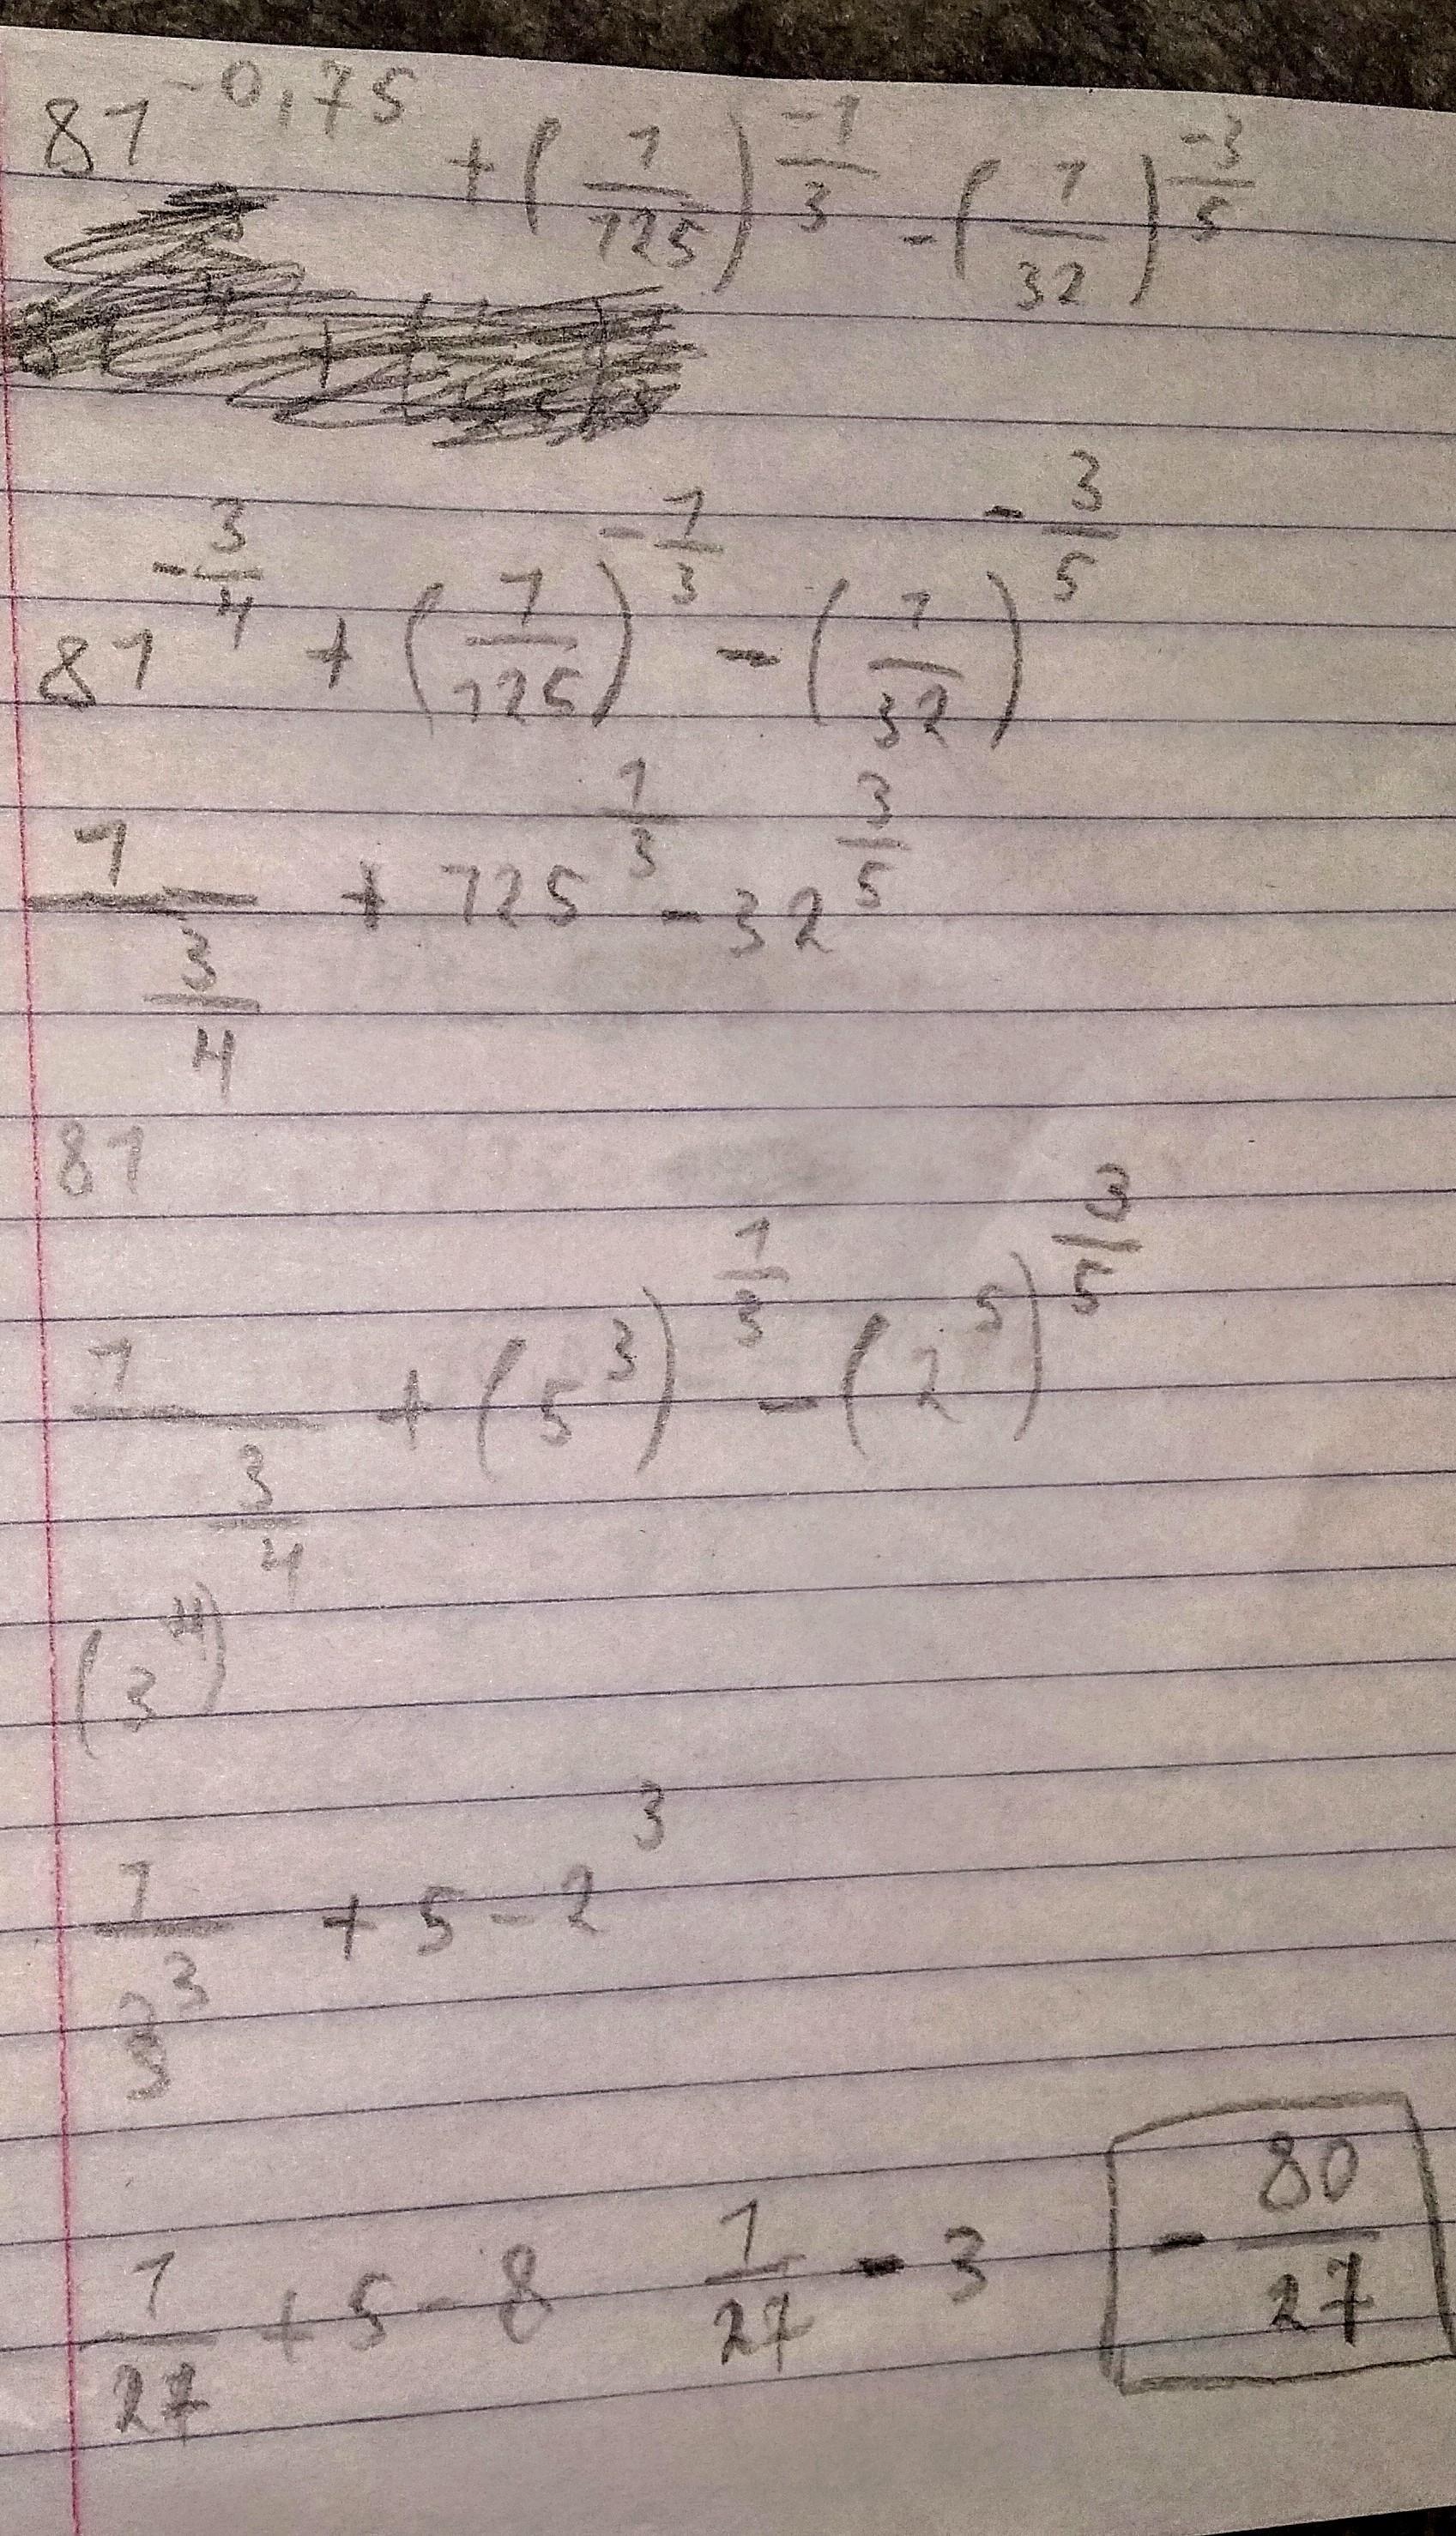 81^{-0,75} + (1/125)^{-1/3} - (1/32)^{-3/5}
81^{-3/4} + (1/125)^{-1/3} - (1/32)^{-3/5}
1/81^{3/4} + 125^{1/3} - 32^{3/5}
1/(3^4)^{3/4} + (5^3)^{1/3} - (2^5)^{3/5}
1/3^3 + 5 - 2^3
1/27 + 5 - 8 1/27 - 3 - 80/27